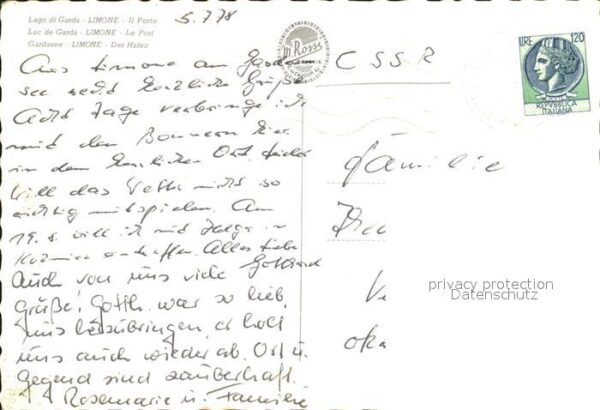 Lago di Garda - LIMONE - Il Porto
Lac de Garda - LIMONE - Le Port
Gardasee - LIMONE - Der Hafen
5.7.78
Aus Limone am Garda
see recht herzliche Grüße
Acht Tage verbringe ich
mit den hier
in dem herrlichen Ort. Leider
will das Wetter nicht so
richtig mitspielen. Am
19. will ich mit Helga in
Alles Liebe
Gotthard
Auch von uns viele
Grüße! Gotth. war so lieb,
uns herzubringen, er holt
uns auch wieder ab. Ort u.
Gegend sind zauberhaft.
Rosemarie u. Familie
Rossi
CSSR
LIRE 120
REPVBBLICA
ITALIANA
Familie
privacy protection
Datenschutz
oka